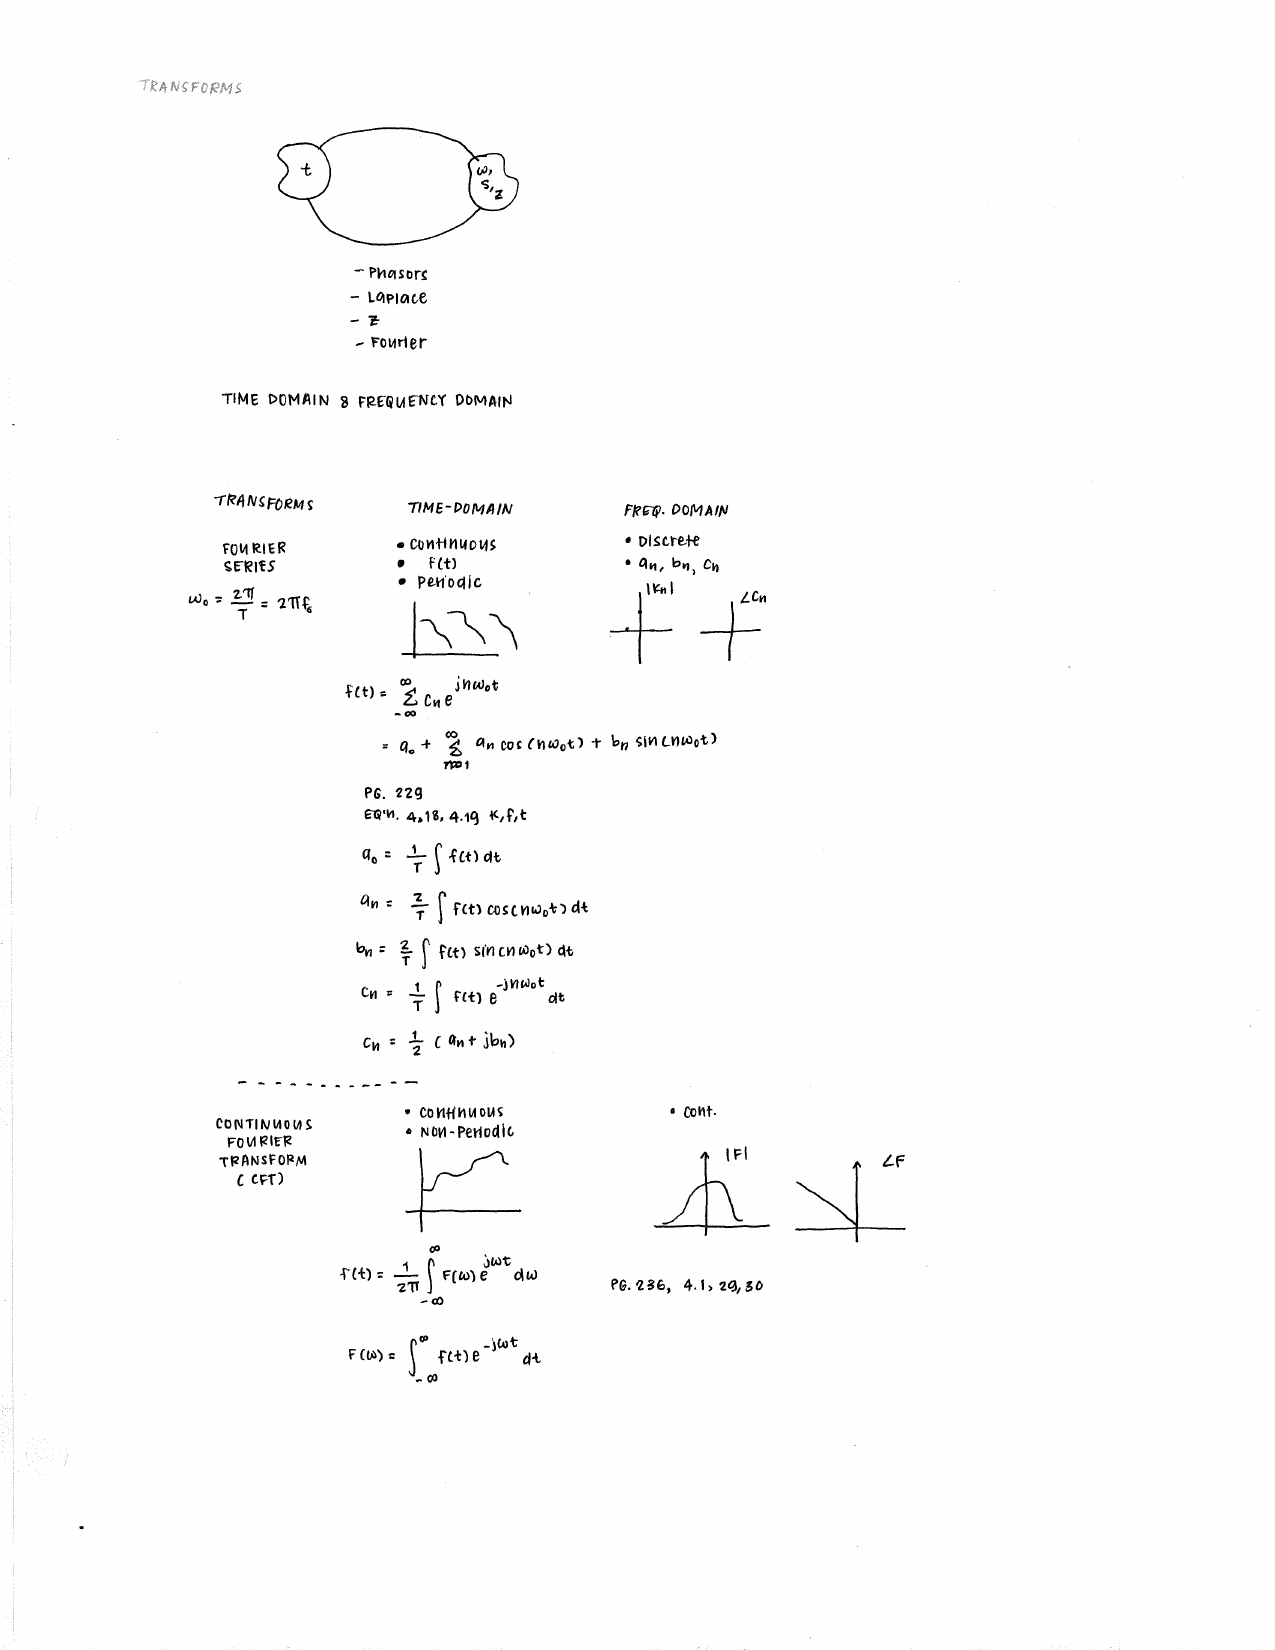 TRANSFORMS
t
ω,
s,
z
- Phasors
- Laplace
- Z
- Fourier
TIME DOMAIN & FREQUENCY DOMAIN
TRANSFORMS TIME-DOMAIN FREQ. DOMAIN
FOURIER SERIES
• Continuous
• f(t)
• Periodic
• Discrete
• an, bn, Cn
ω₀ = 2π/T = 2πf₀
|Kn| ∠Cn
f(t) = ∑_{-∞}^{∞} Cn e^{jnω₀t}
= a₀ + ∑_{n=1}^{∞} an cos(nω₀t) + bn sin(nω₀t)
PG. 229
EQ'n. 4.18, 4.19 K,f,t
a₀ = 1/T ∫ f(t) dt
an = 2/T ∫ f(t) cos(nω₀t) dt
bn = 2/T ∫ f(t) sin(nω₀t) dt
Cn = 1/T ∫ f(t) e^{-jnω₀t} dt
Cn = 1/2 (an + jbn)
CONTINUOUS
FOURIER
TRANSFORM
(CFT)
• Continuous
• Non-Periodic
• Cont.
|F| ∠F
f(t) = 1/2π ∫_{-∞}^{∞} F(ω) e^{jωt} dω
PG. 236, 4.1, 29, 30
F(ω) = ∫_{-∞}^{∞} f(t) e^{-jωt} dt